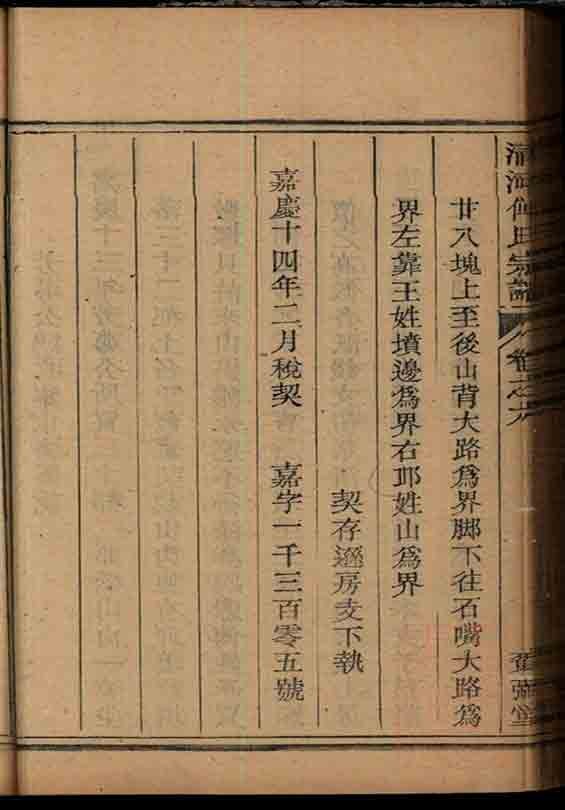 氏宗譜 卷之六
廿八塊上至後山背大路爲界脚下往石嘴大路爲
界左靠王姓墳邊爲界右邛姓山爲界
契存遜房支下執
嘉慶十四年二月稅契 嘉字一千三百零五號